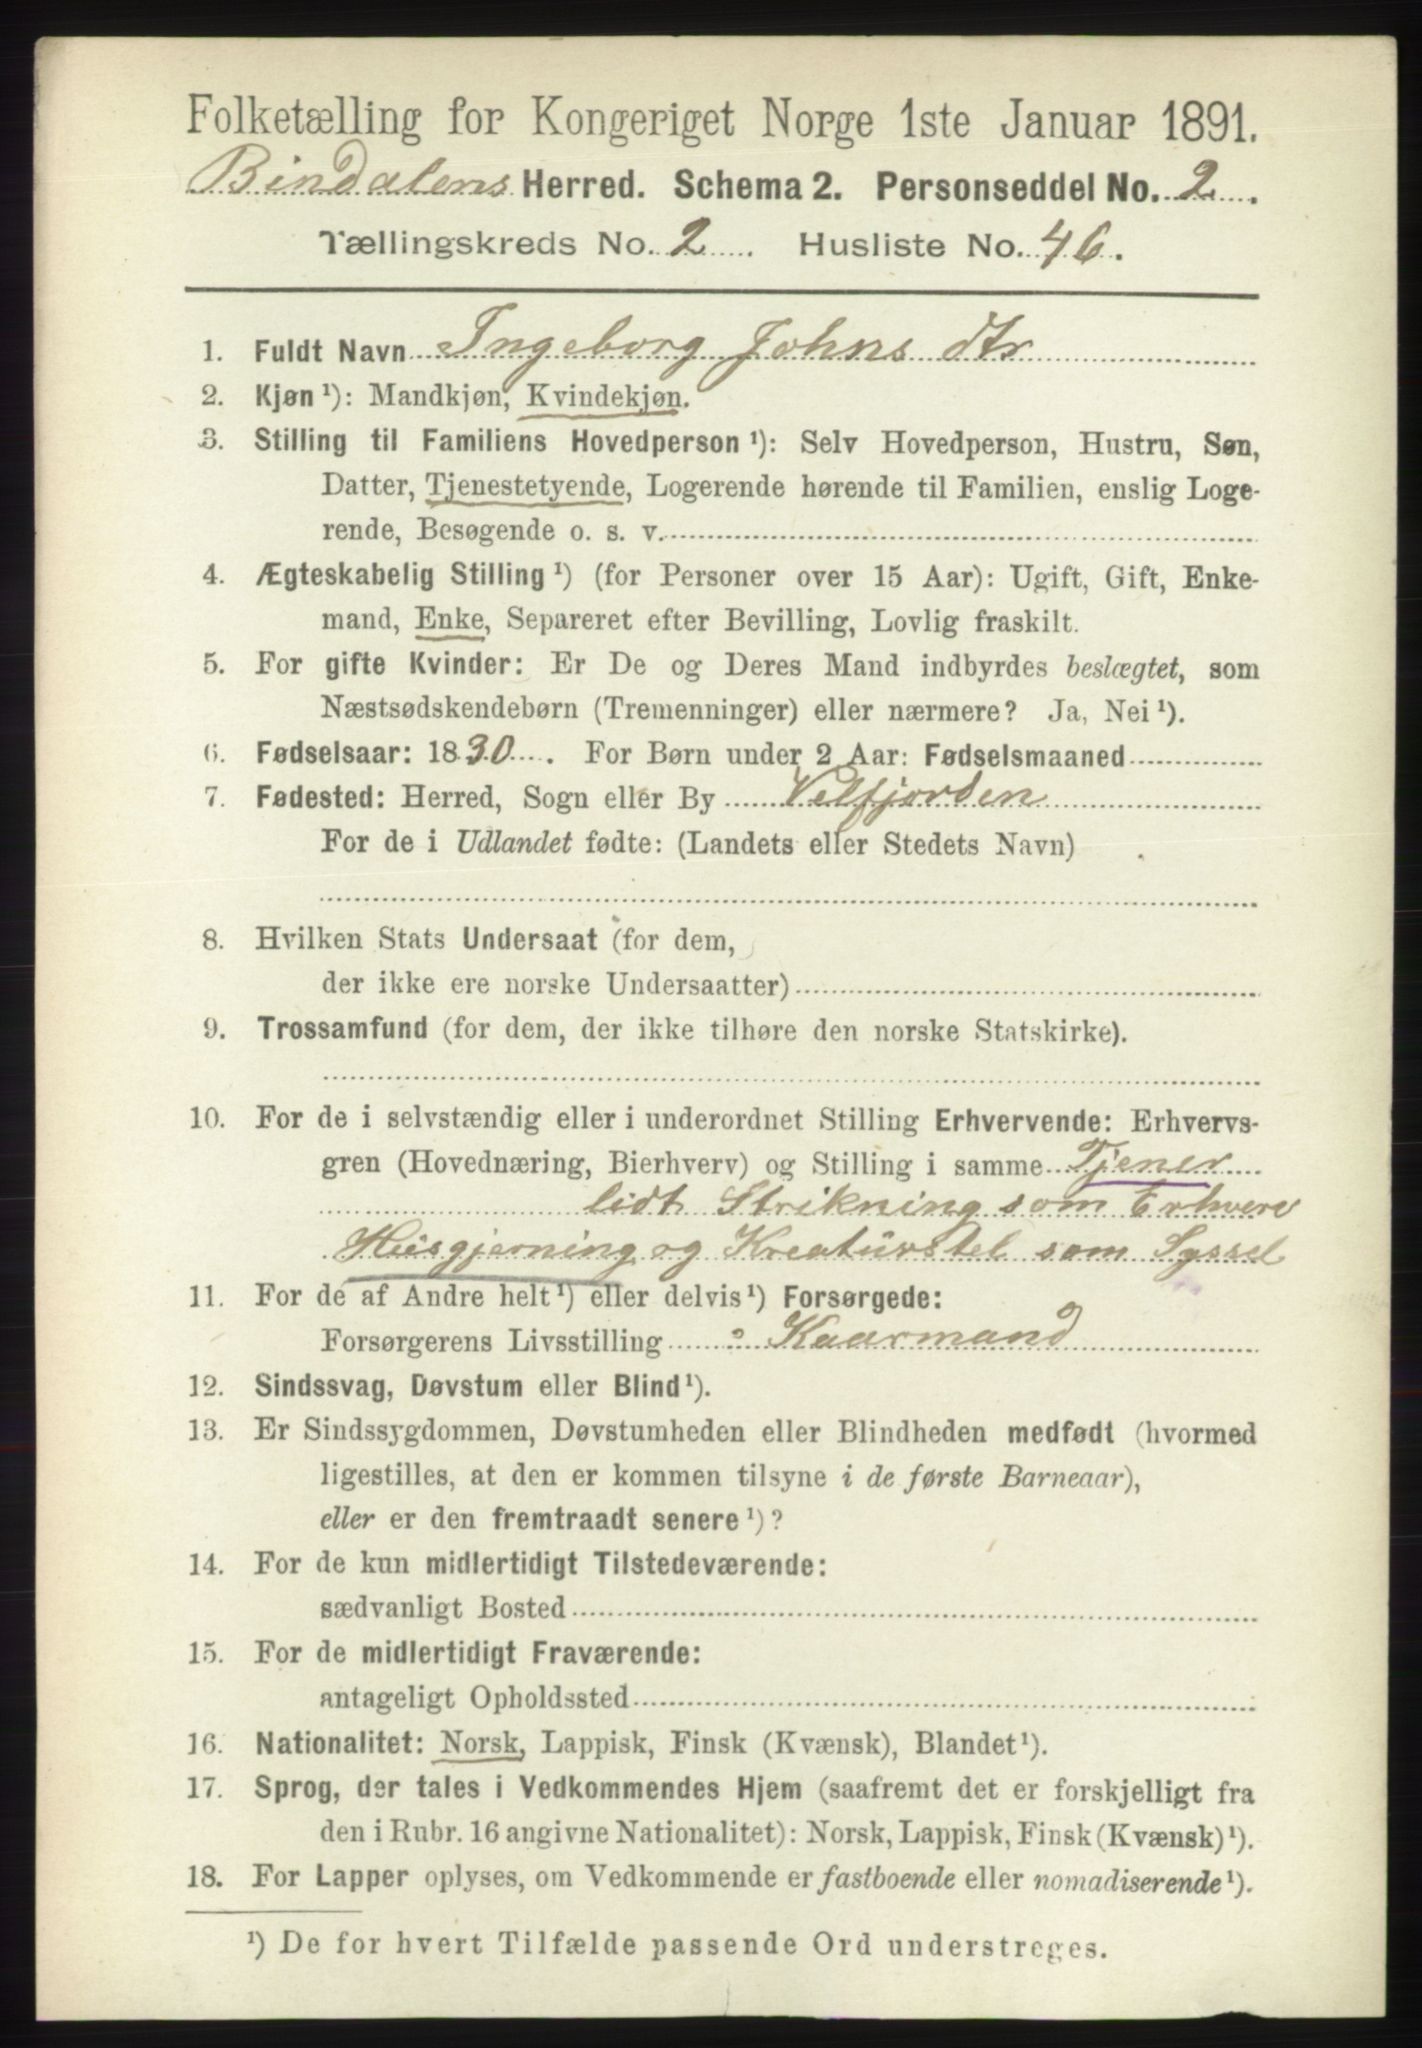 Folketælling for Kongeriget Norge 1ste Januar 1891.
Bindalens Herred. Schema 2. Personseddel No. 2.
Tællingskreds No. 2 Husliste No. 46.
1. Fuldt Navn Ingeborg Johns dtr
2. Kjøn ¹): Mandkjøn, Kvindekjøn.
3. Stilling til Familiens Hovedperson ¹): Selv Hovedperson, Hustru, Søn,
Datter, Tjenestetyende, Logerende hørende til Familien, enslig Loge-
rende, Besøgende o. s. v.
4. Ægteskabelig Stilling ¹) (for Personer over 15 Aar): Ugift, Gift, Enke-
mand, Enke, Separeret efter Bevilling, Lovlig fraskilt.
5. For gifte Kvinder: Er De og Deres Mand indbyrdes beslægtet, som
Næstsødskendebørn (Tremenninger) eller nærmere? Ja, Nei ¹).
6. Fødselsaar: 1830. For Børn under 2 Aar: Fødselsmaaned
7. Fødested: Herred, Sogn eller By Velfjorden
For de i Udlandet fødte: (Landets eller Stedets Navn)
8. Hvilken Stats Undersaat (for dem,
der ikke ere norske Undersaatter)
9. Trossamfund (for dem, der ikke tilhøre den norske Statskirke).
10. For de i selvstændig eller i underordnet Stilling Erhvervende: Erhvervs-
gren (Hovednæring, Bierhverv) og Stilling i samme Tjener
lidt Strikning som Erhverv
Husgjerning og Kreaturstel som Syssel
11. For de af Andre helt ¹) eller delvis ¹) Forsørgede:
Forsørgerens Livsstilling Kaarmand
12. Sindssvag, Døvstum eller Blind ¹).
13. Er Sindssygdommen, Døvstumheden eller Blindheden medfødt (hvormed
ligestilles, at den er kommen tilsyne i de første Barneaar),
eller er den fremtraadt senere ¹)?
14. For de kun midlertidigt Tilstedeværende:
sædvanligt Bosted
15. For de midlertidigt Fraværende:
antageligt Opholdssted
16. Nationalitet: Norsk, Lappisk, Finsk (Kvænsk), Blandet ¹).
17. Sprog, der tales i Vedkommendes Hjem (saafremt det er forskjelligt fra
den i Rubr. 16 angivne Nationalitet): Norsk, Lappisk, Finsk (Kvænsk) ¹).
18. For Lapper oplyses, om Vedkommende er fastboende eller nomadiserende ¹).
¹) De for hvert Tilfælde passende Ord understreges.